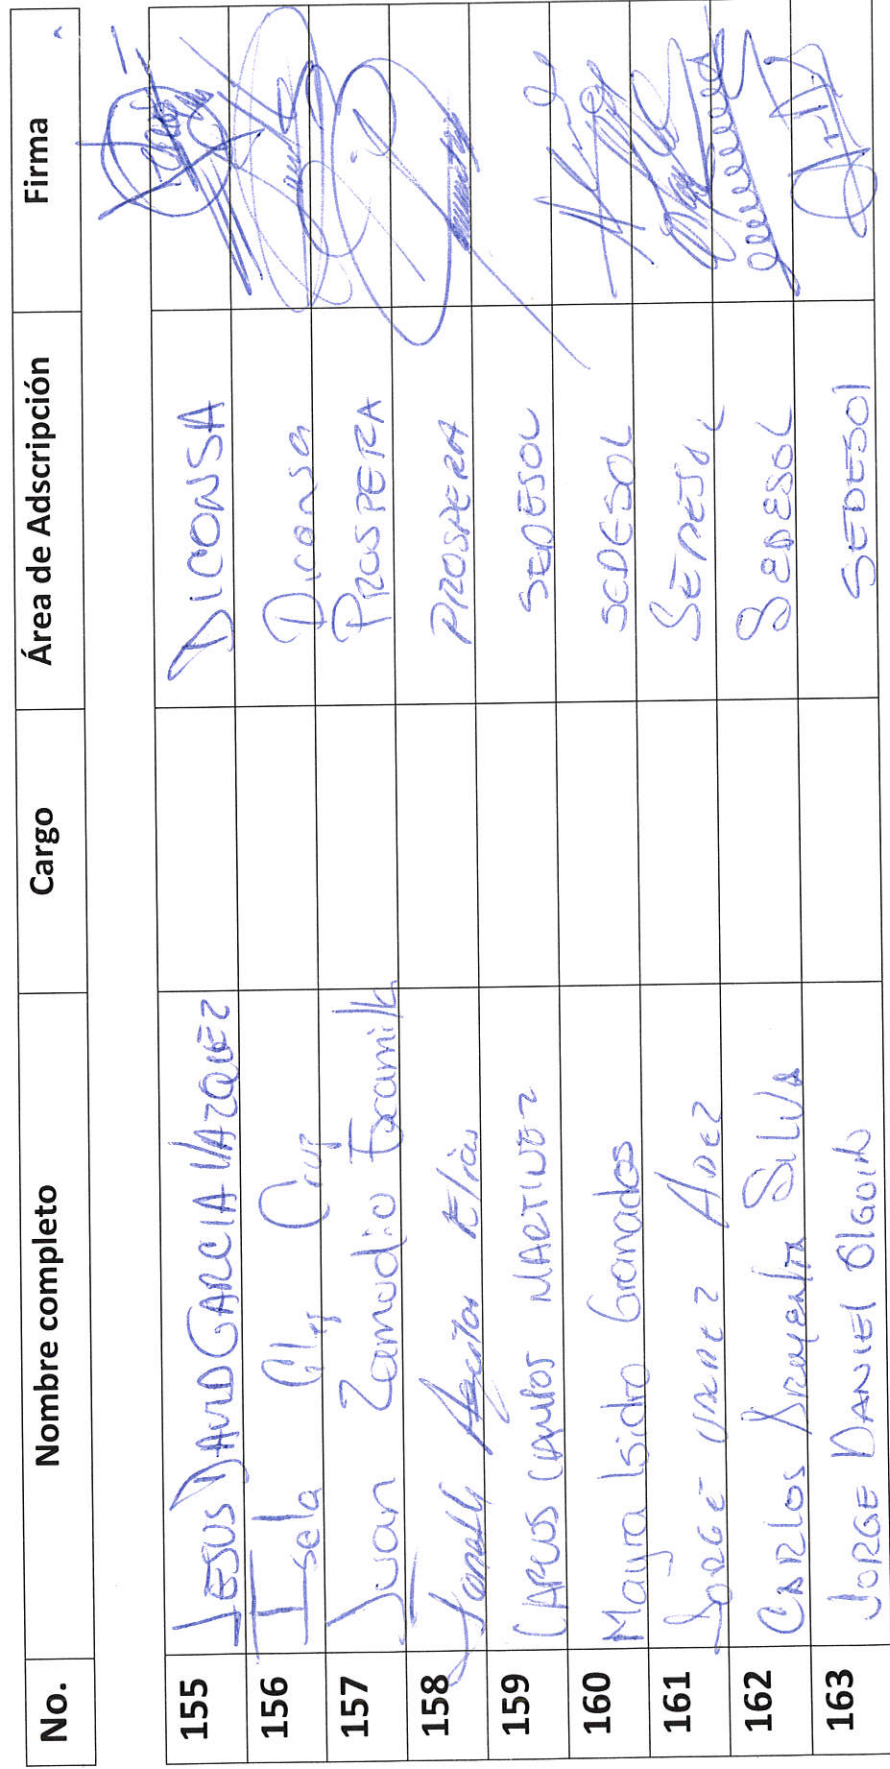 No. Nombre completo Cargo Área de Adscripción Firma
155 JESUS DAVID GARCIA VAZQUEZ DICONSA
156 Isela Cruz Diconsa
157 Juan Zamudio Escamilla PROSPERA
158 Elias PROSPERA
159 CARLOS MARTINEZ SEDESOL
160 Mayra Isidro Granados SEDESOL
161 JORGE SEDESOL
162 CARLOS SILVA SEDESOL
163 JORGE DANIEL OlGUIN SEDESOl